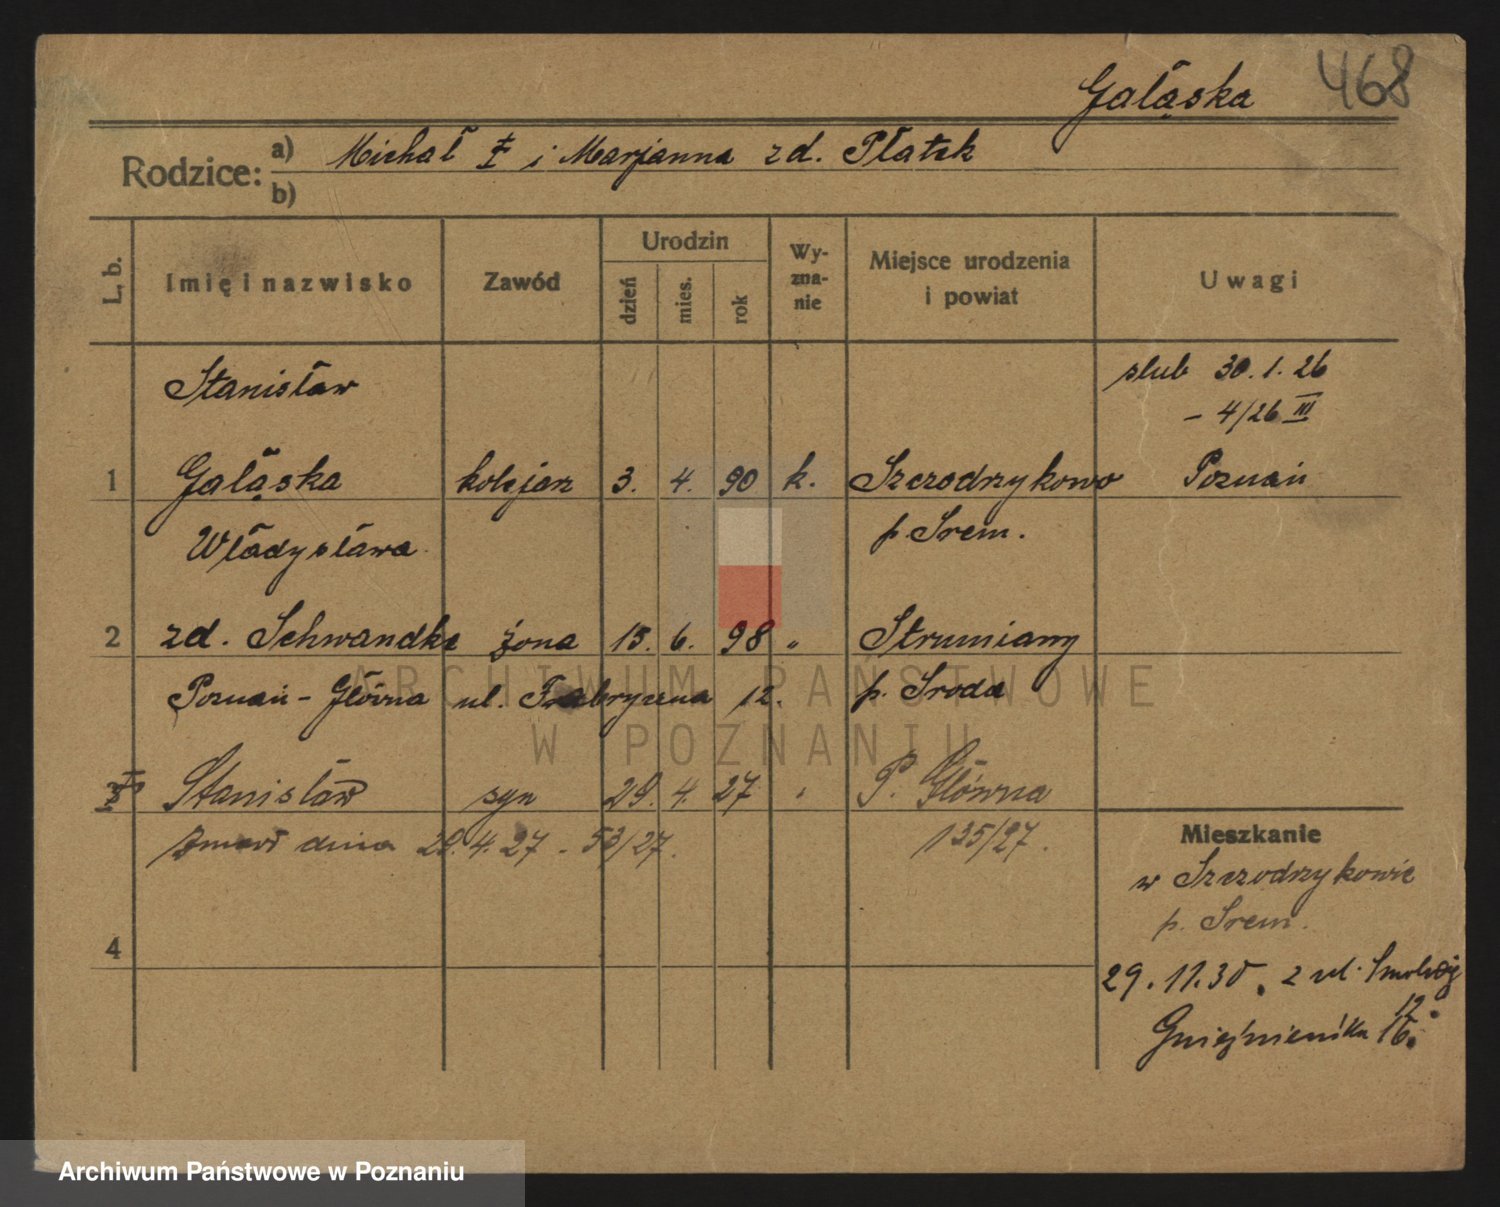 Gałąska 468
Rodzice: a) Michał † i Marjanna zd. Płatek
b)
L. b. Imię i nazwisko Zawód Urodzin dzień mies. rok Wy-zna-nie Miejsce urodzenia i powiat Uwagi
Stanisław ślub 30.1.26
- 4/26 III
1 Gałąska kolejarz 3. 4. 90 k. Szczodrzykowo Poznań
Władysława p. Śrem.
2 zd. Schwandke żona 15. 6. 98 " Strumiany
Poznań - Główna ul. Fabryczna 12. p. Środa
3 Stanisław syn 29. 4. 27 " P. Główna
zmarł dnia 29.4.27 - 53/27. 135/27.
4
Mieszkanie
w Szczodrzykowie
p. Śrem.
29.11.30. z ul. Smolnej
12.
Gnieźnieńska 16.
ARCHIWUM PAŃSTWOWE
W POZNANIU
Archiwum Państwowe w Poznaniu